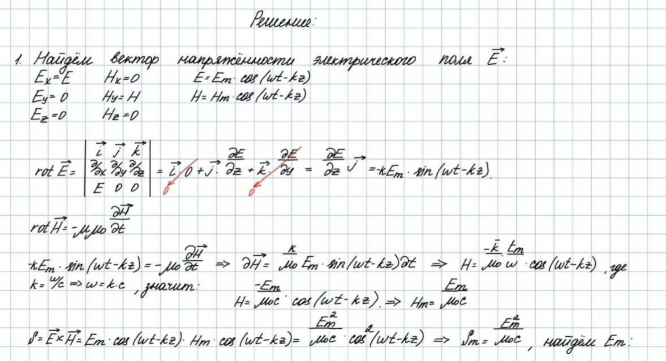 Решение:
1. Найдём вектор напряжённости электрического поля E⃗:
Eₓ=E Hₓ=0 E=Eₘ·cos(wt-kz)
Eᵧ=0 Hy=H H=Hₘ·cos(wt-kz)
E_z=0 H_z=0
rot E⃗ = | i⃗ j⃗ k⃗ ; ∂/∂x ∂/∂y ∂/∂z ; E 0 0 | = i⃗·0 + j⃗·∂E/∂z + k⃗·∂E/∂y = ∂E/∂z j⃗ = -kEₘ·sin(wt-kz).
0 0
rot H⃗ = -μμ₀ ∂H⃗/∂t
-kEₘ·sin(wt-kz) = -μ₀ ∂H⃗/∂t ⇒ ∂H⃗ = k/μ₀ Eₘ·sin(wt-kz)∂t ⇒ H = -k⃗ tₘ/μ₀ w · cos(wt-kz), где
k = w/c ⇒ w = k·c, значит: H = -Eₘ/μ₀c · cos(wt-kz) ⇒ Hₘ = Eₘ/μ₀c
S = E⃗×H⃗ = Eₘ·cos(wt-kz)·Hₘ·cos(wt-kz) = Eₘ²/μ₀c · cos²(wt-kz) ⇒ Sₘ = Eₘ²/μ₀c, найдём Eₘ: